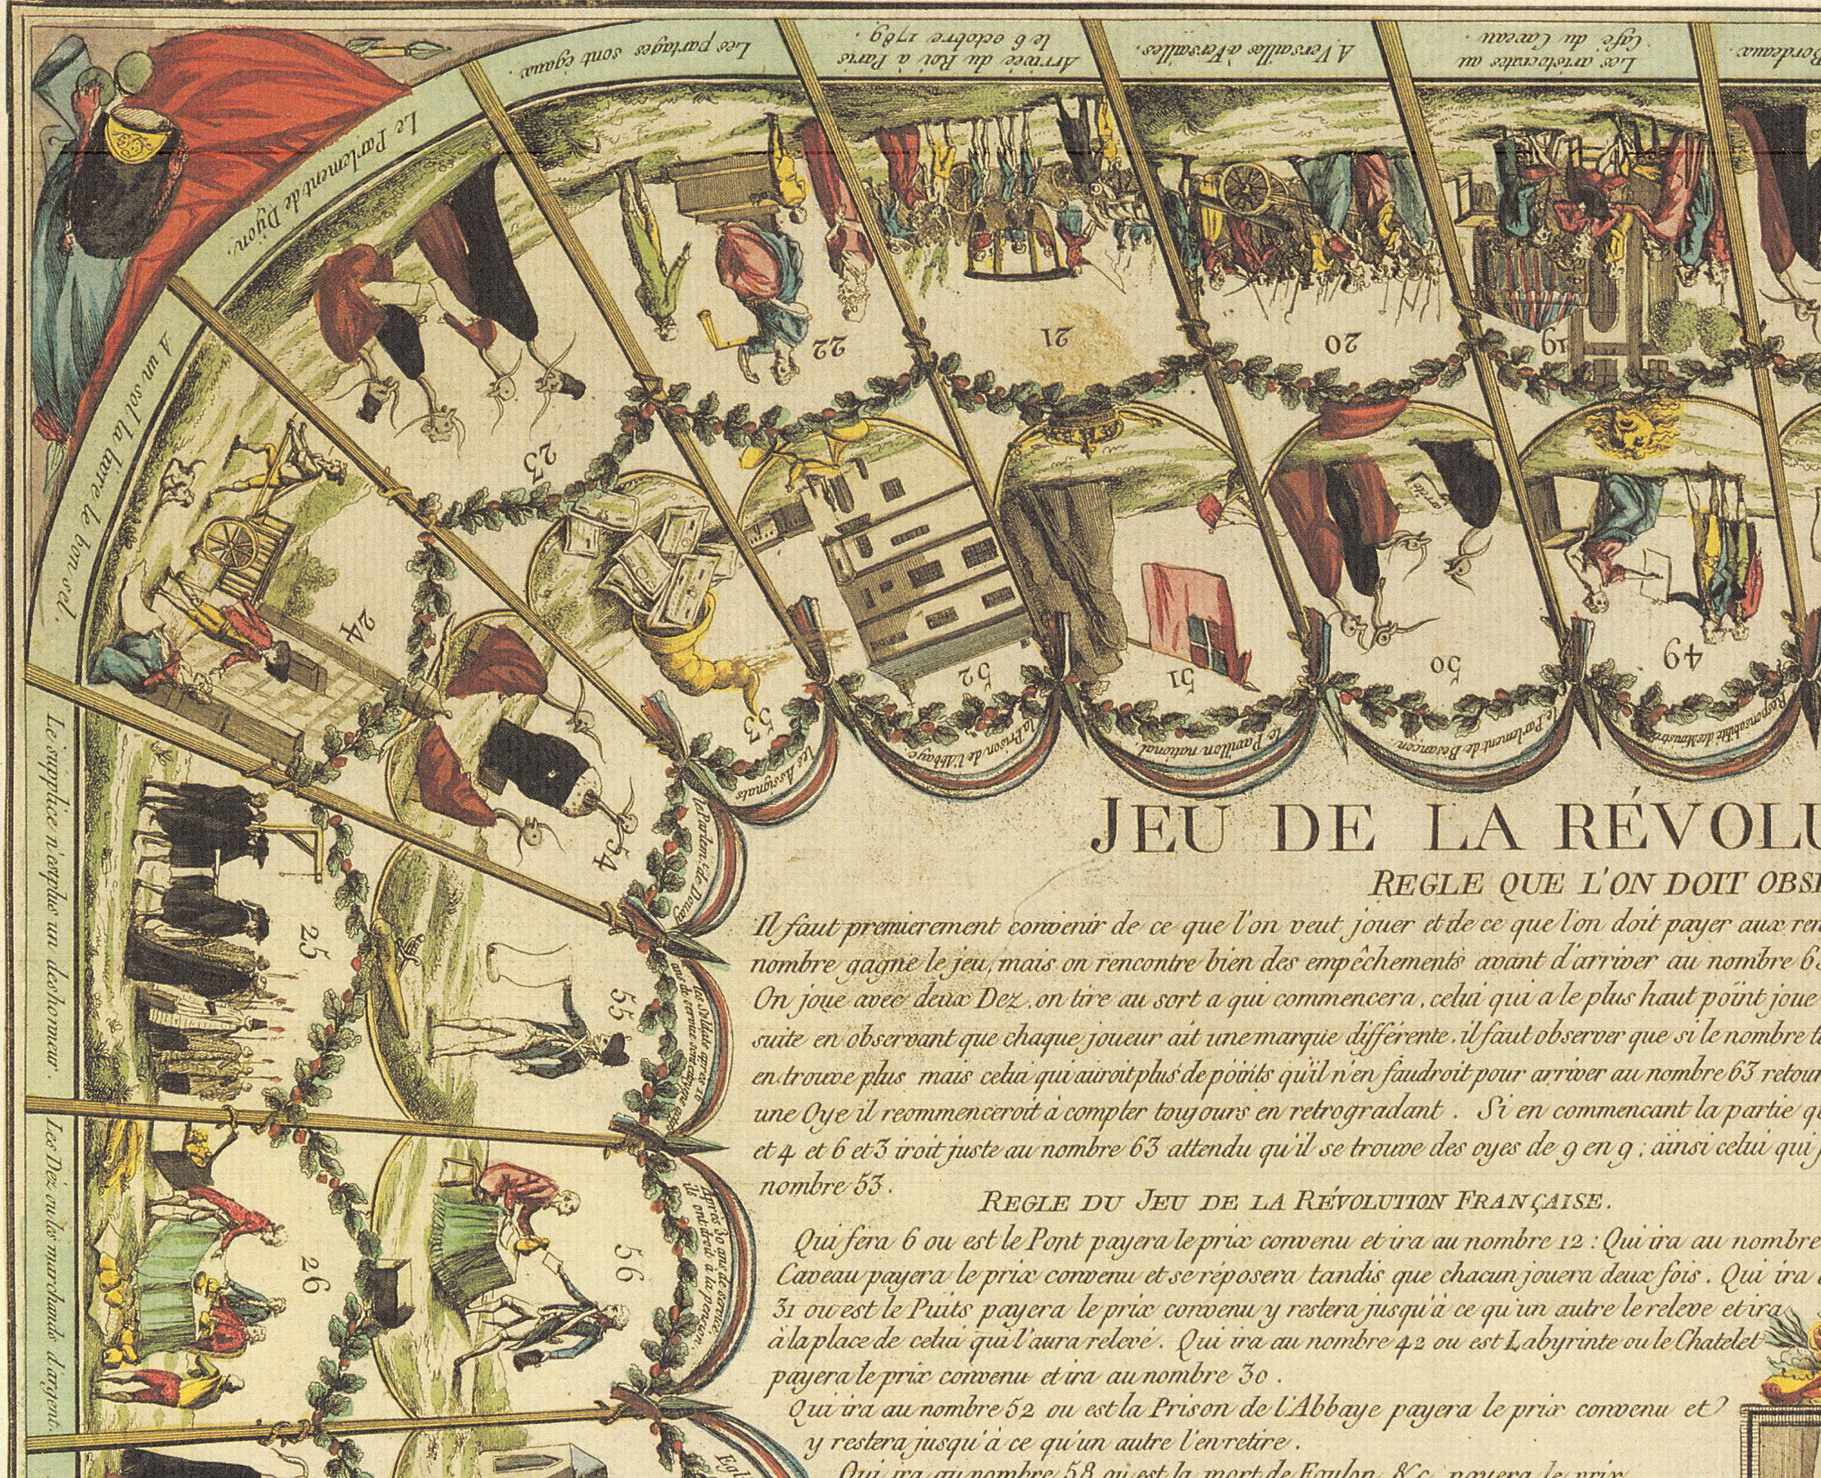 Bordeaux.
Les aristocrates au
Café du Caveau.
19
A Versailles à Versailles.
20
Arrivée du Roi à Paris
le 6 octobre 1789.
21
Les partages sont égaux.
22
Le Parlement de Dijon.
23
A un sol la livre le bon sel.
24
Le supplice n'est plus un deshoneur.
25
Les Dez ou les marchands d'argent.
26
49
Responsabilité des Ministres
50
le Parlement de Besançon
51
le Pavillon national.
52
la Prison de l'Abbaye
53
Les Assignats
54
le Parlem.t de Douay
55
56
Après 30 ans de service
ils ont droit à la pension.
JEU DE LA RÉVOLU
REGLE QUE L'ON DOIT OBSE
Il faut premierement convenir de ce que l'on veut jouer et de ce que l'on doit payer aux ren
nombre gagne le jeu, mais on rencontre bien des empêchements avant d'arriver au nombre 63
On joue avec deux Dez, on tire au sort a qui commencera, celui qui a le plus haut point joue
suite en observant que chaque joueur ait une marque différente. il faut observer que si le nombre
en trouve plus mais celui qui auroit plus de points qu'il n'en faudroit pour arriver au nombre 63 retour
une Oye il reommenceroit à compter toujours en retrogradant. Si en commencant la partie
et 4 et 6 et 3 iroit juste au nombre 63 attendu qu'il se trouve des oyes de 9 en 9; ainsi celui qui
nombre 53.
REGLE DU JEU DE LA RÉVOLUTION FRANÇAISE.
Qui fera 6 ou est le Pont payera le prix convenu et ira au nombre 12: Qui ira au nombre
Caveau payera le prix convenu et se réposera tandis que chacun jouera deux fois. Qui ira
31 ou est le Puits payera le prix convenu y restera jusqu'à ce qu'un autre le releve et ira
à la place de celui qui l'aura relevé. Qui ira au nombre 42 ou est Labyrinte ou le Chatelet
payera le prix convenu et ira au nombre 30.
Qui ira au nombre 52 ou est la Prison de l'Abbaye payera le prix convenu et
y restera jusqu'à ce qu'un autre l'en retire.
Qui ira au nombre 58 ou est la mort de Foulon &c. payera le prix